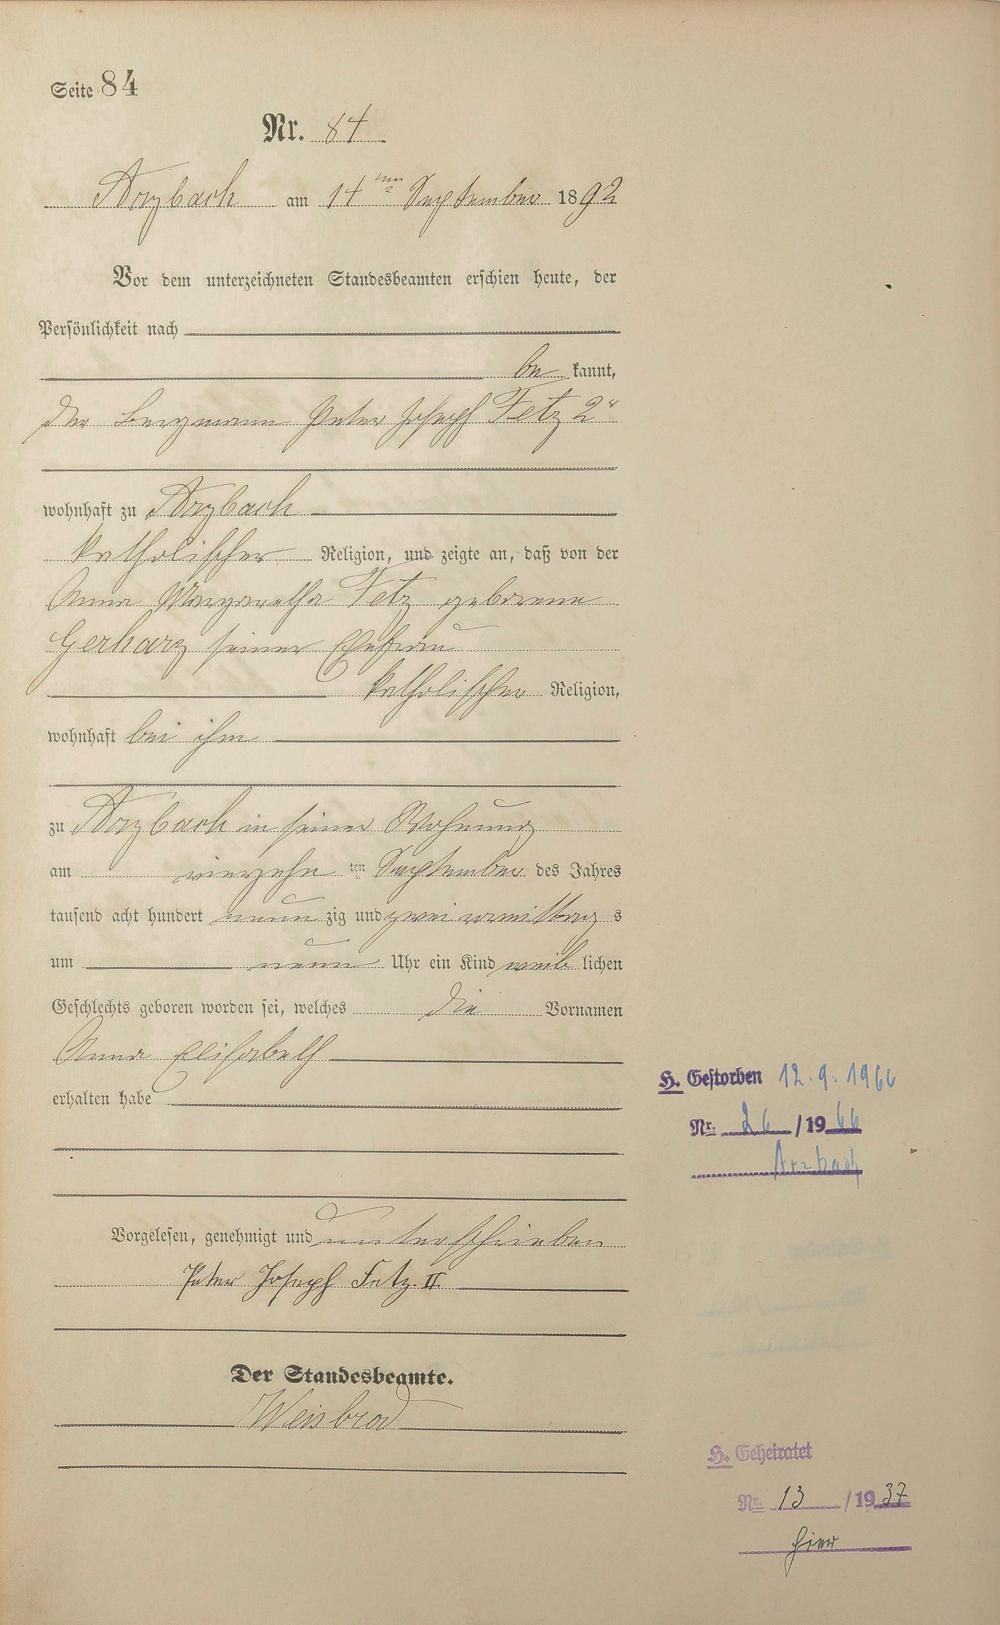 Seite 84
Nr. 84
Arzbach am 14ten September 1892
Vor dem unterzeichneten Standesbeamten erschien heute, der
Persönlichkeit nach
be kannt,
der Bergmann Peter Joseph Fetz 2r
wohnhaft zu Arzbach
katholischer Religion, und zeigte an, daß von der
Anna Margaretha Fetz geborene
Gerharz seiner Ehefrau
katholischer Religion,
wohnhaft bei ihm
zu Arzbach in seiner Wohnung
am vierzehn ten September des Jahres
tausend acht hundert neun zig und zwei vormittag s
um neun Uhr ein Kind weib lichen
Geschlechts geboren worden sei, welches die Vornamen
Anna Elisabeth
erhalten habe
H. Gestorben 12.9.1966
Nr. 26/1966
Arzbach
Vorgelesen, genehmigt und unterschrieben
Peter Joseph Fetz. II.
Der Standesbeamte.
Weisbrod
H. Geheiratet
Nr. 13/1937
hier